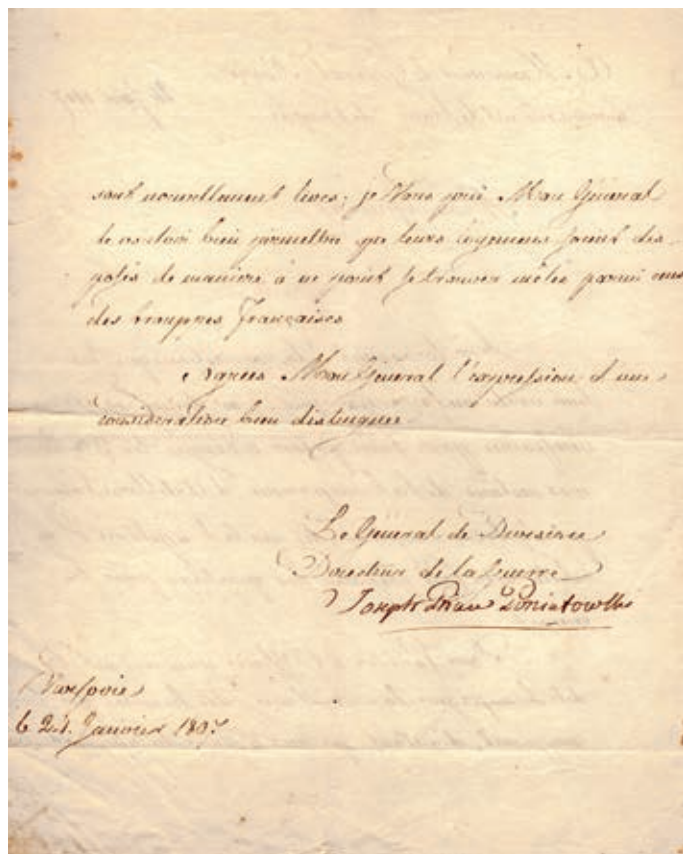 sont nouvellement levés; je Vous prie Mon Général
de vouloir bien permettre que leurs logemens soient dis
posés de manière à ne point se trouver mêlés parmi ceux
des trouppes Françaises
Agréez Mon Général l'expression d'une
considération bien distinguée
Le Général de Division
Directeur de la Guerre
Joseph Prince Poniatowski
Varsovie
le 24. Janvier 1807